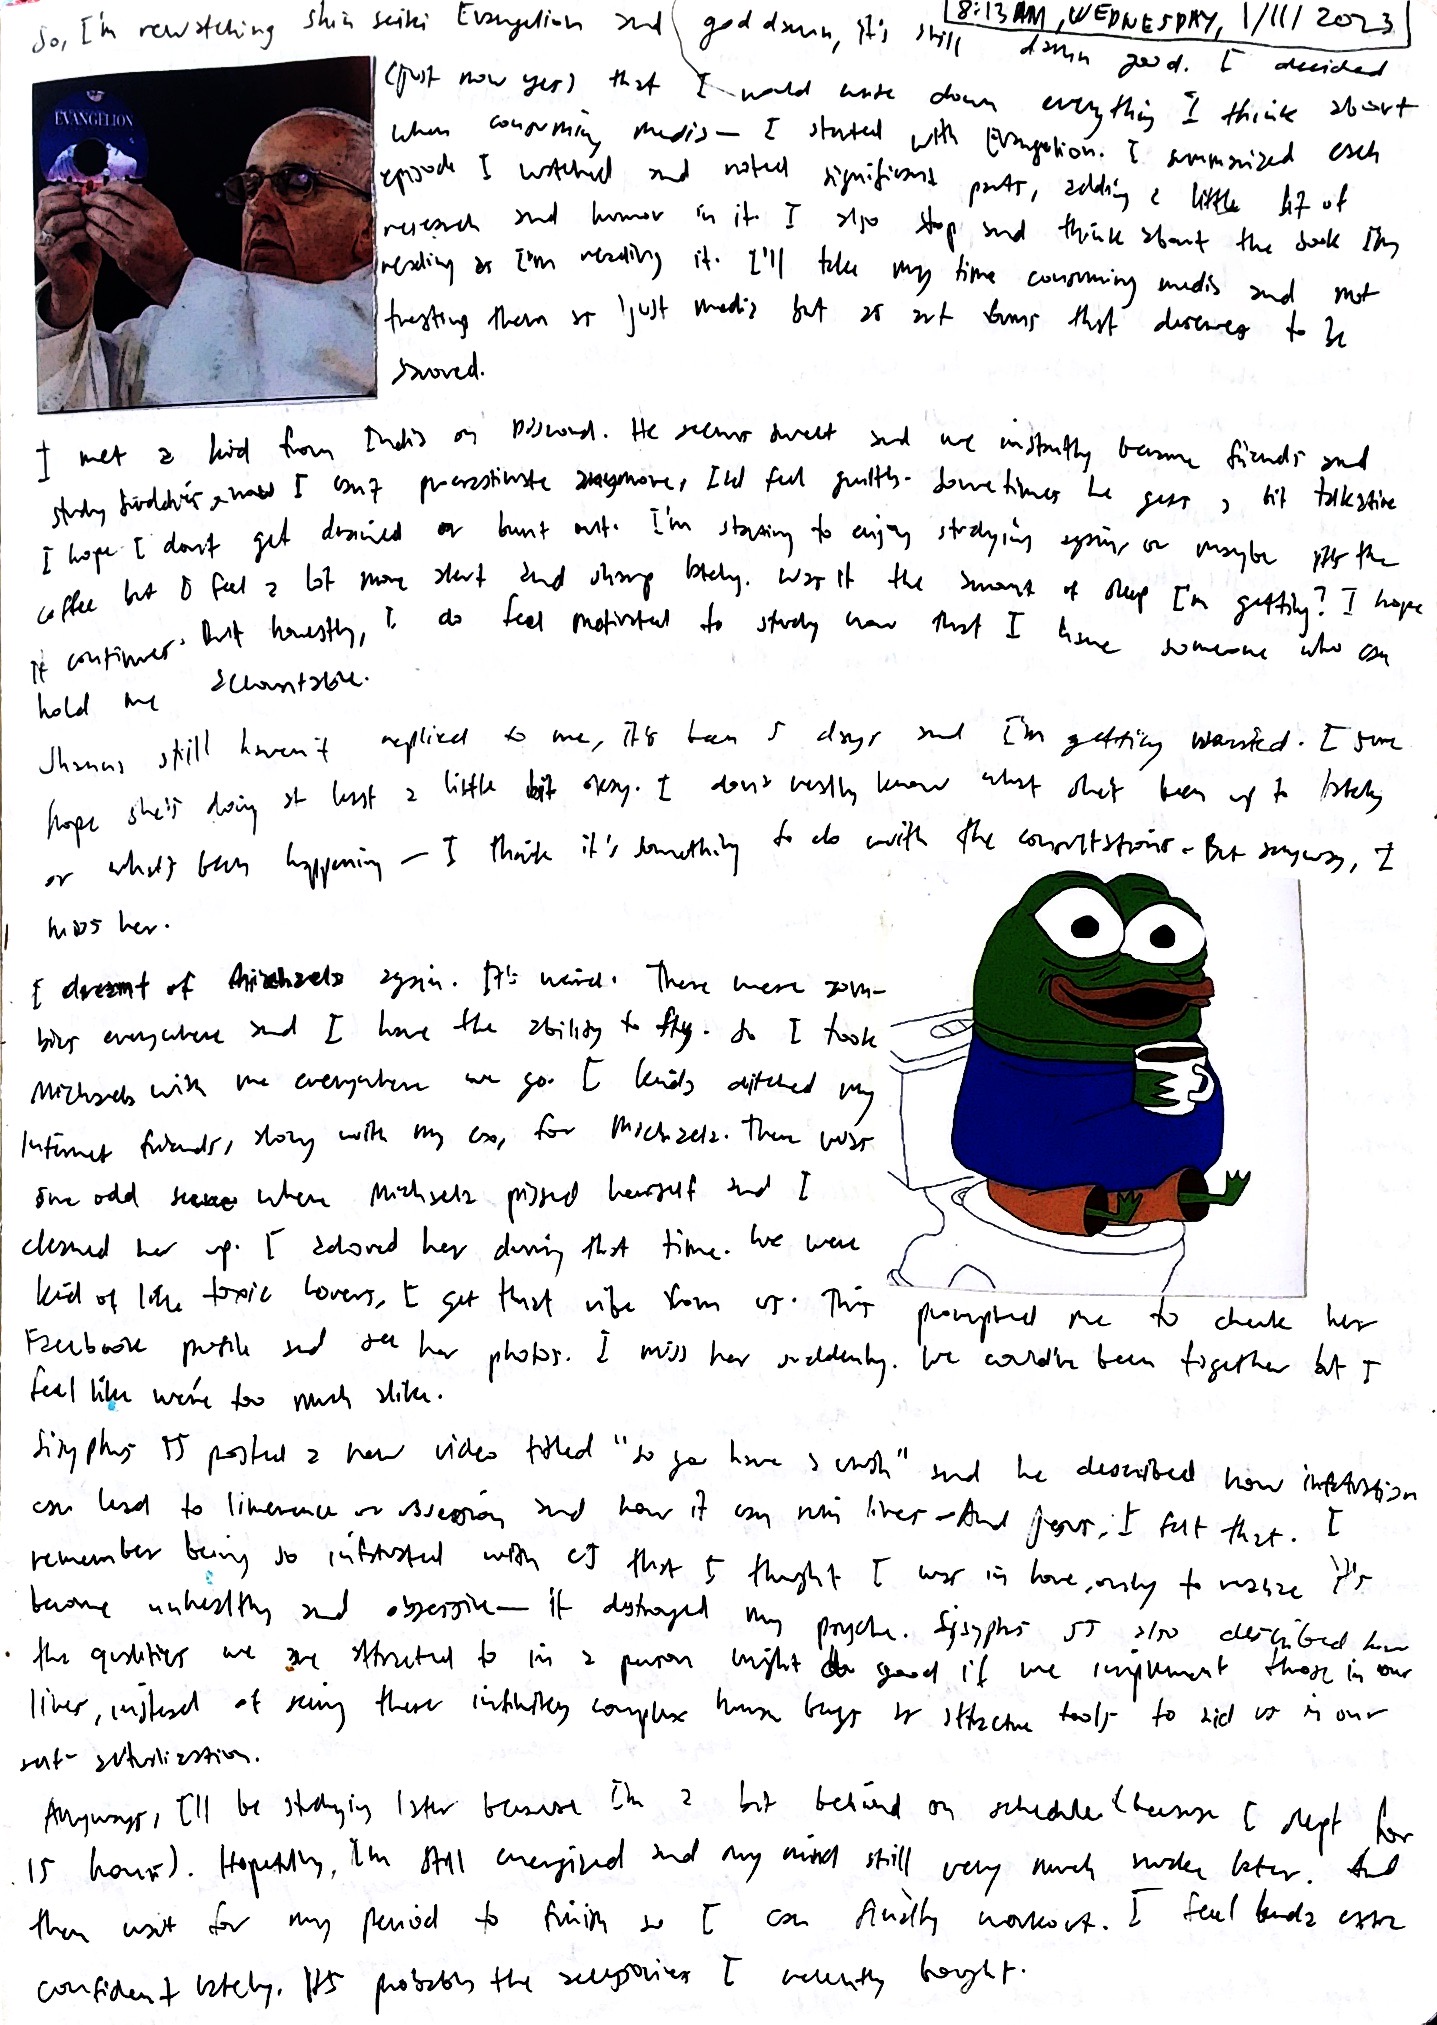 8:13 AM, WEDNESDAY, 1/11/2023
So, I'm rewatching Shin seiki Evangelion and goddamn, it's still damn good. I decided
EVANGELION
(just now yes) that I would write down everything I think about
when consuming media— I started with Evangelion. I summarized each
episode I watched and noted significant parts, adding a little bit of
research and humor in it. I also stop and think about the book I'm
reading as I'm reading it. I'll take my time consuming media and not
treating them as just media but as art forms that deserves to be
savored.
I met a kid from India on Discord. He seems sweet and we instantly became friends and
study buddies, now I can't procrastinate anymore, I'd feel guilty. Sometimes he gets a bit talkative
I hope I don't get drained or burnt out. I'm starting to enjoy studying again or maybe it's the
coffee but I feel a lot more alert and sharp lately. Was it the amount of sleep I'm getting? I hope
it continues. But honestly, I do feel motivated to study now that I have someone who can
hold me accountable.
still haven't replied to me, it's been 5 days and I'm getting worried. I sure
hope she's doing at least a little bit okay. I don't really know what she's been up to lately
or what's been happening — I think it's something to do with the consultations. But anyway, I
miss her.
I dreamt of Michaela again. It's weird. There were zom-
bies everywhere and I have the ability to fly. So I took
Michaela with me everywhere we go. I kinda ditched my
internet friends, along with my ex, for Michaela. There was
one odd scene where Michaela pissed herself and I
cleaned her up. I adored her during that time. We were
kid of like toxic lovers, I get that vibe from us. This prompted me to check her
Facebook profile and see her photos. I miss her suddenly. We could've been together but I
feel like we're too much alike.
Sisyphus 55 posted a new video titled "so you have a crush" and he described how infatuation
can lead to limerence or obsession and how it can ruin lives. And Jesus, I felt that. I
remember being so infatuated with CJ that I thought I was in love, only to realize it's
become unhealthy and obsessive— it destroyed my psyche. Sisyphus 55 also described how
the qualities we are attracted to in a person might do good if we implement those in our
lives, instead of seeing these infinitely complex human beings as attractive tools to aid us in our
self-actualization.
Anyways, I'll be studying later because I'm a bit behind on schedule (because I slept for
15 hours). Hopefully, I'm still energized and my mind still very much awake later. And
then wait for my period to finish so I can finally workout. I feel kinda extra
confident lately. It's probably the accessories I recently bought.